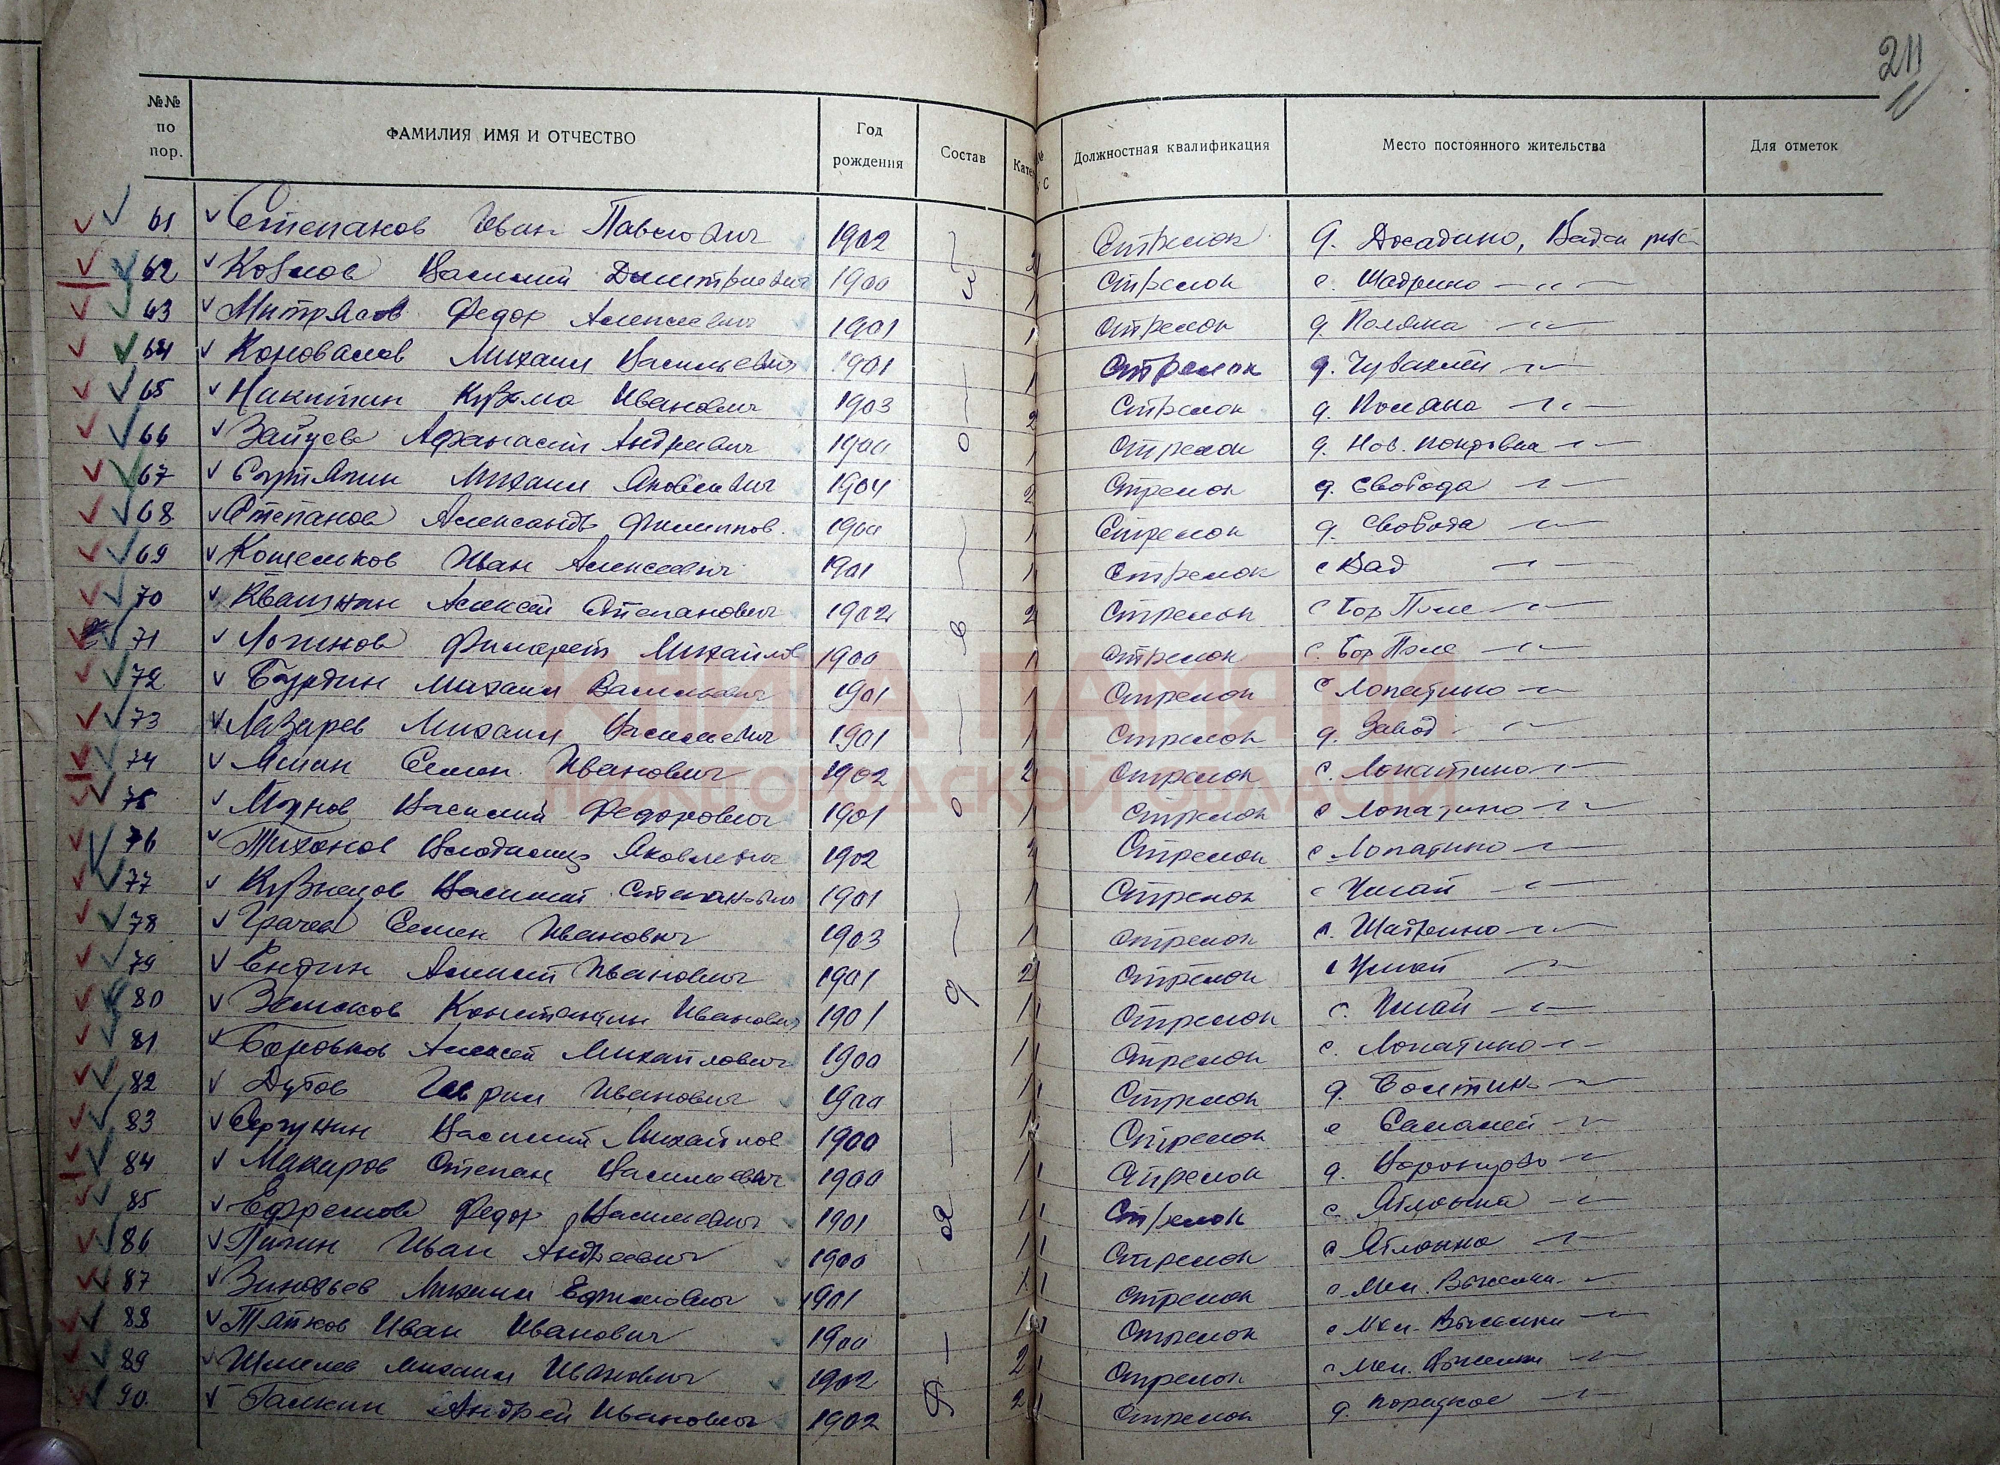 211
№№ по пор. ФАМИЛИЯ ИМЯ И ОТЧЕСТВО Год рождения Состав Должностная квалификация Место постоянного жительства Для отметок
61 Степанов Иван Павлович 1902 Стрелок д. Вадск
62 Козлов Василий Дмитриевич 1900 1 Стрелок с. Шадрино
63 Митрясов Федор Алексеевич 1901 1 Стрелок д. Поляна
64 Коновалов Михаил Васильевич 1901 1 Стрелок д.
65 Никитин Кузьма Иванович 1903 2 Стрелок д. Поляна
66 Зайцев Афанасий Андреевич 1900 1 Стрелок д. Нов. Покровка
67 Михаил Яковлевич 1904 2 Стрелок д. Свобода
68 Степанов Александр Филиппов. 1900 1 Стрелок д. Свобода
69 Кошельков Иван Алексеевич 1901 1 Стрелок с Вад
70 Квашнин Алексей Степанович 1902 2 Стрелок с Бор Поле
71 Логинов Филарет Михайлов 1900 1 Стрелок с. Бор Поле
72 Бурдин Михаил Васильевич 1901 1 Стрелок с Лопатино
73 Лазарев Михаил Васильевич 1901 1 Стрелок д. Завод
74 Семен Иванович 1902 2 Стрелок с. Лопатино
75 Василий Федорович 1901 1 Стрелок с Лопатино
76 Тихонов Владимир Яковлевич 1902 2 Стрелок с Лопатино
77 Кузнецов Василий Степанович 1901 1 Стрелок с
78 Грачев Семен Иванович 1903 1 Стрелок с. Шадрино
79 Ендин Алексей Иванович 1901 2 Стрелок с
80 Земсков Константин Иванович 1901 1 Стрелок с.
81 Боровков Алексей Михайлович 1900 1 Стрелок с. Лопатино
82 Дубов Гаврил Иванович 1900 1 Стрелок д.
83 Сергунин Василий Михайлов 1900 1 Стрелок с
84 Макаров Степан Васильевич 1900 1 Стрелок д.
85 Ефремов Федор Васильевич 1901 1 Стрелок с. Яблонка
86 Пигин Иван Андреевич 1900 1 Стрелок с Яблонка
87 Зиновьев Михаил Ефимович 1901 1 Стрелок с
88 Тайков Иван Иванович 1900 1 Стрелок с
89 Шмелев Михаил Иванович 1902 2 Стрелок с
90. Галкин Андрей Иванович 1902 2 Стрелок д.
КНИГА ПАМЯТИ
НИЖГОРОДСКОЙ ОБЛАСТИ